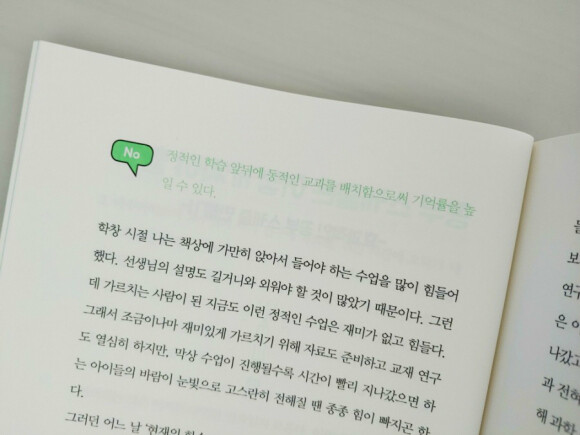 No
정적인 학습 앞뒤에 동적인 교과를 배치함으로써 기억률을 높
일 수 있다.
학창 시절 나는 책상에 가만히 앉아서 들어야 하는 수업을 많이 힘들어
했다. 선생님의 설명도 길거니와 외워야 할 것이 많았기 때문이다. 그런
데 가르치는 사람이 된 지금도 이런 정적인 수업은 재미가 없고 힘들다.
그래서 조금이나마 재미있게 가르치기 위해 자료도 준비하고 교재 연구
도 열심히 하지만, 막상 수업이 진행될수록 시간이 빨리 지나갔으면 하
는 아이들의 바람이 눈빛으로 고스란히 전해질 땐 종종 힘이 빠지곤 한
다.
그러던 어느 날 '현재의
보
연구
은 이
나갔고
과 전혀
해 과학